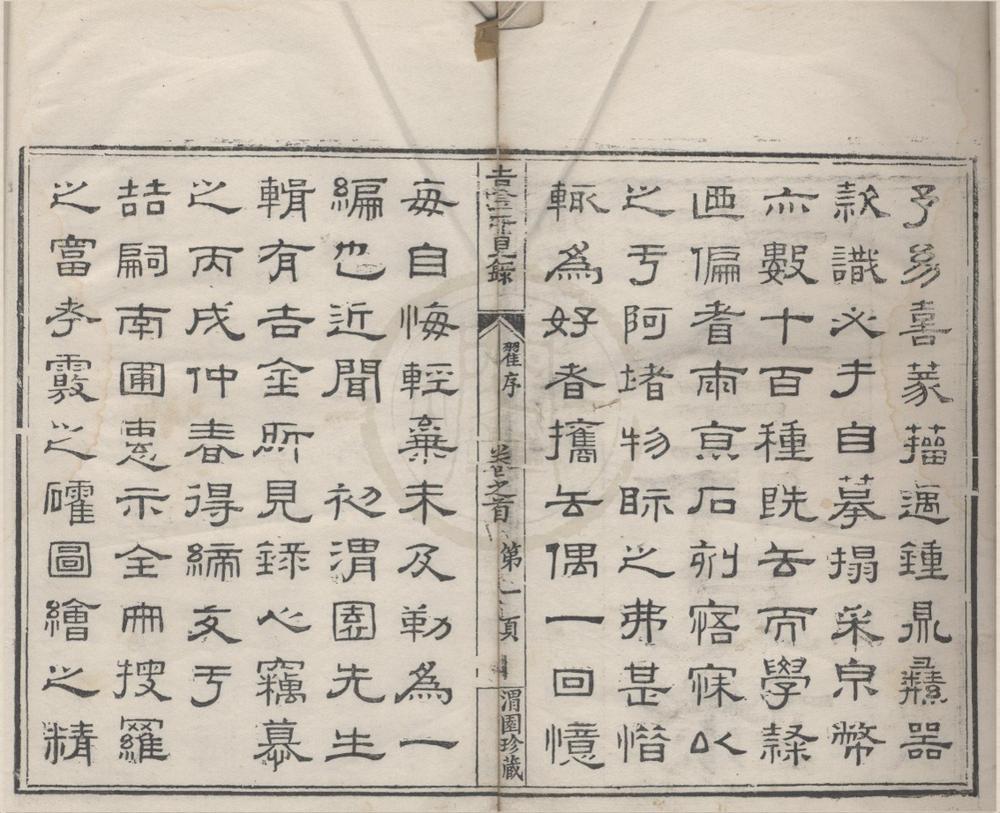 予幼喜篆籀遇鍾鼎彝器
款識必手自摹搨采泉幣
亦數十百種旣去而學隸
迺偏耆兩京石刻寤寐以
之于阿堵物眎之弗甚惜
輒為好者攜去偶一回憶
吉金所見錄 翟序 卷之首 第一頁 渭園珍藏
每自悔輕棄未及勒為一
編也近聞 初渭園先生
輯有吉金所見錄心竊慕
之丙戌仲春得締交于
喆嗣南圃惠示全冊搜羅
之富考覈之確圖繪之精